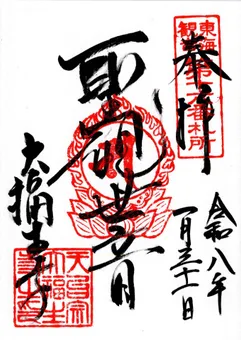 東海
観音
第十六番札所
奉拝
令和八年
一月三十一日
聖観世音
大福生寺
天台宗
大福生寺